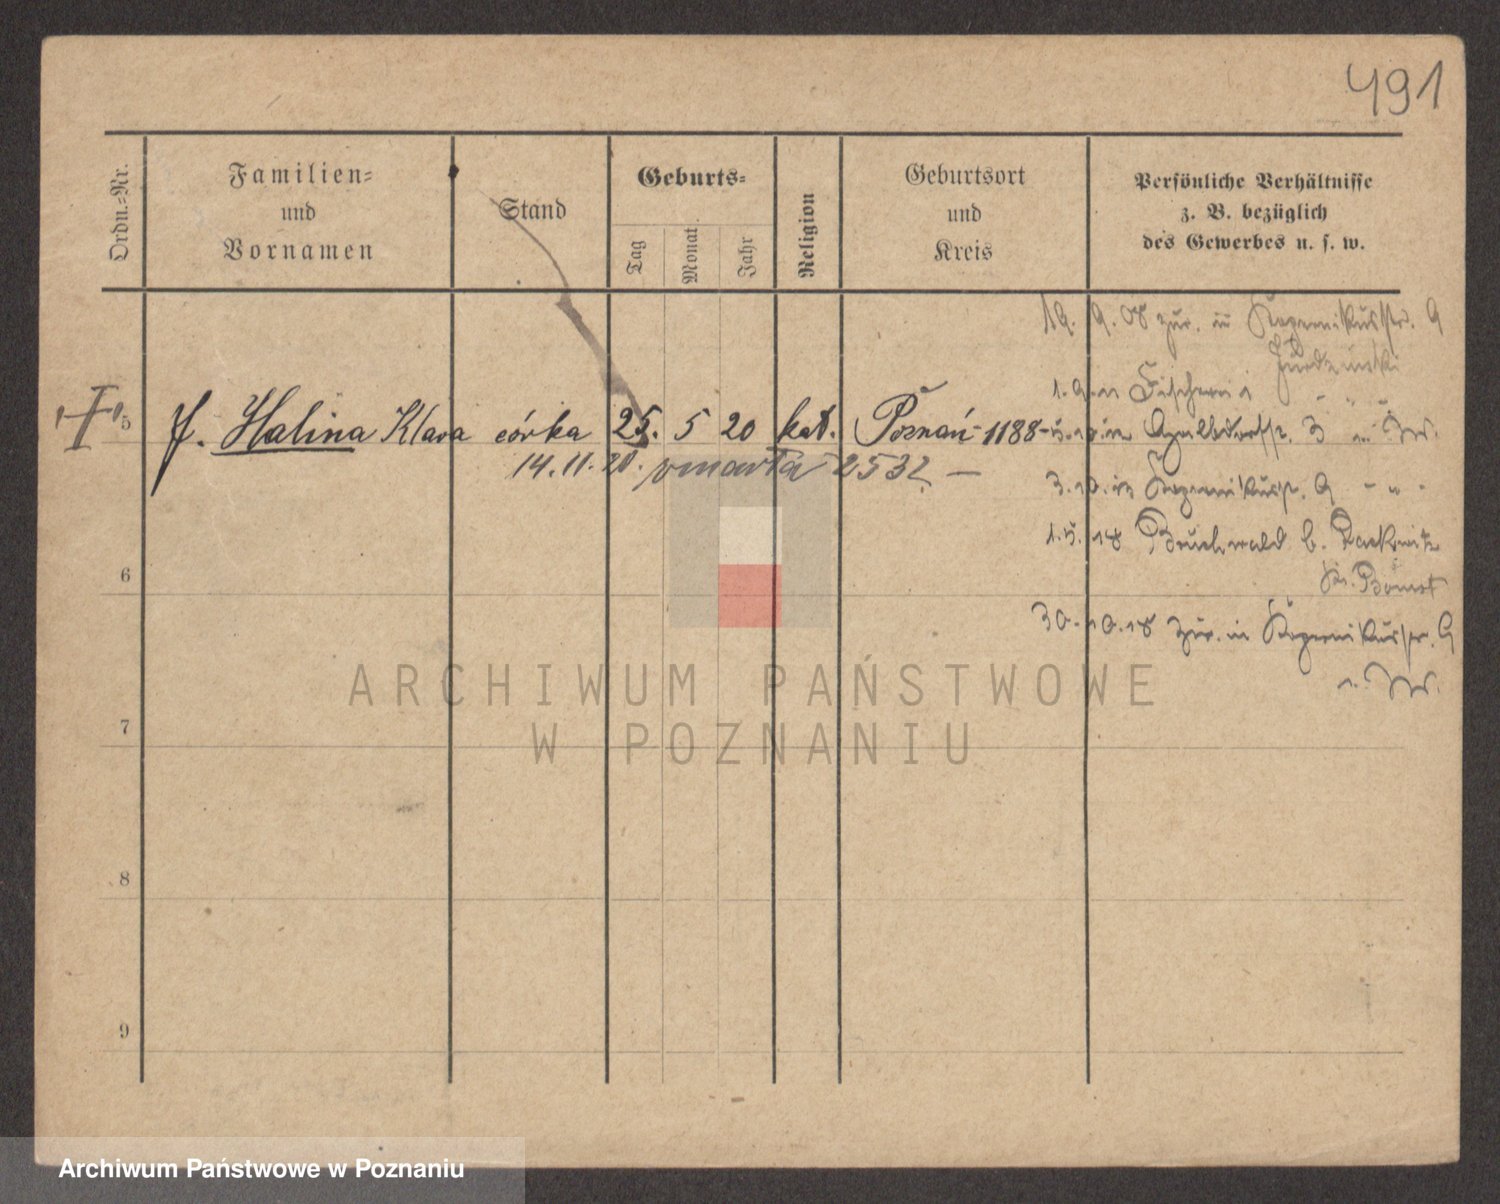 491
Ordn.-Nr.
Familien-
und
Vornamen
Stand
Geburts-
Tag
Monat
Jahr
Religion
Geburtsort
und
Kreis
Persönliche Verhältnisse
z. B. bezüglich
des Gewerbes u. s. w.
19. 9. 08 zur. in Kopernikusstr. 9
5 f. Halina Klara córka 25. 5 20 kat. Poznań - 1188 -
14.11.20. umarła 2532 —
3.10. in Kopernikusstr. 9 - " -
1.5.18 Bruchwald b.
6
Kr. Bomst
30.10.18 zur. in Kopernikusstr. 9
ARCHIWUM PAŃSTWOWE
W POZNANIU
7
8
9
Archiwum Państwowe w Poznaniu